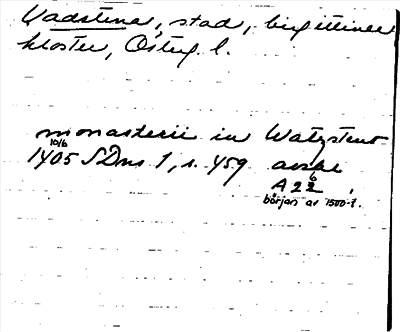 Vadstena, stad, birgittiner
kloster, Österg. l.
monasterii in Watzstena
10/6
1405 SDns 1, s. 459 avskr
A 22 6
början av 1500-t.